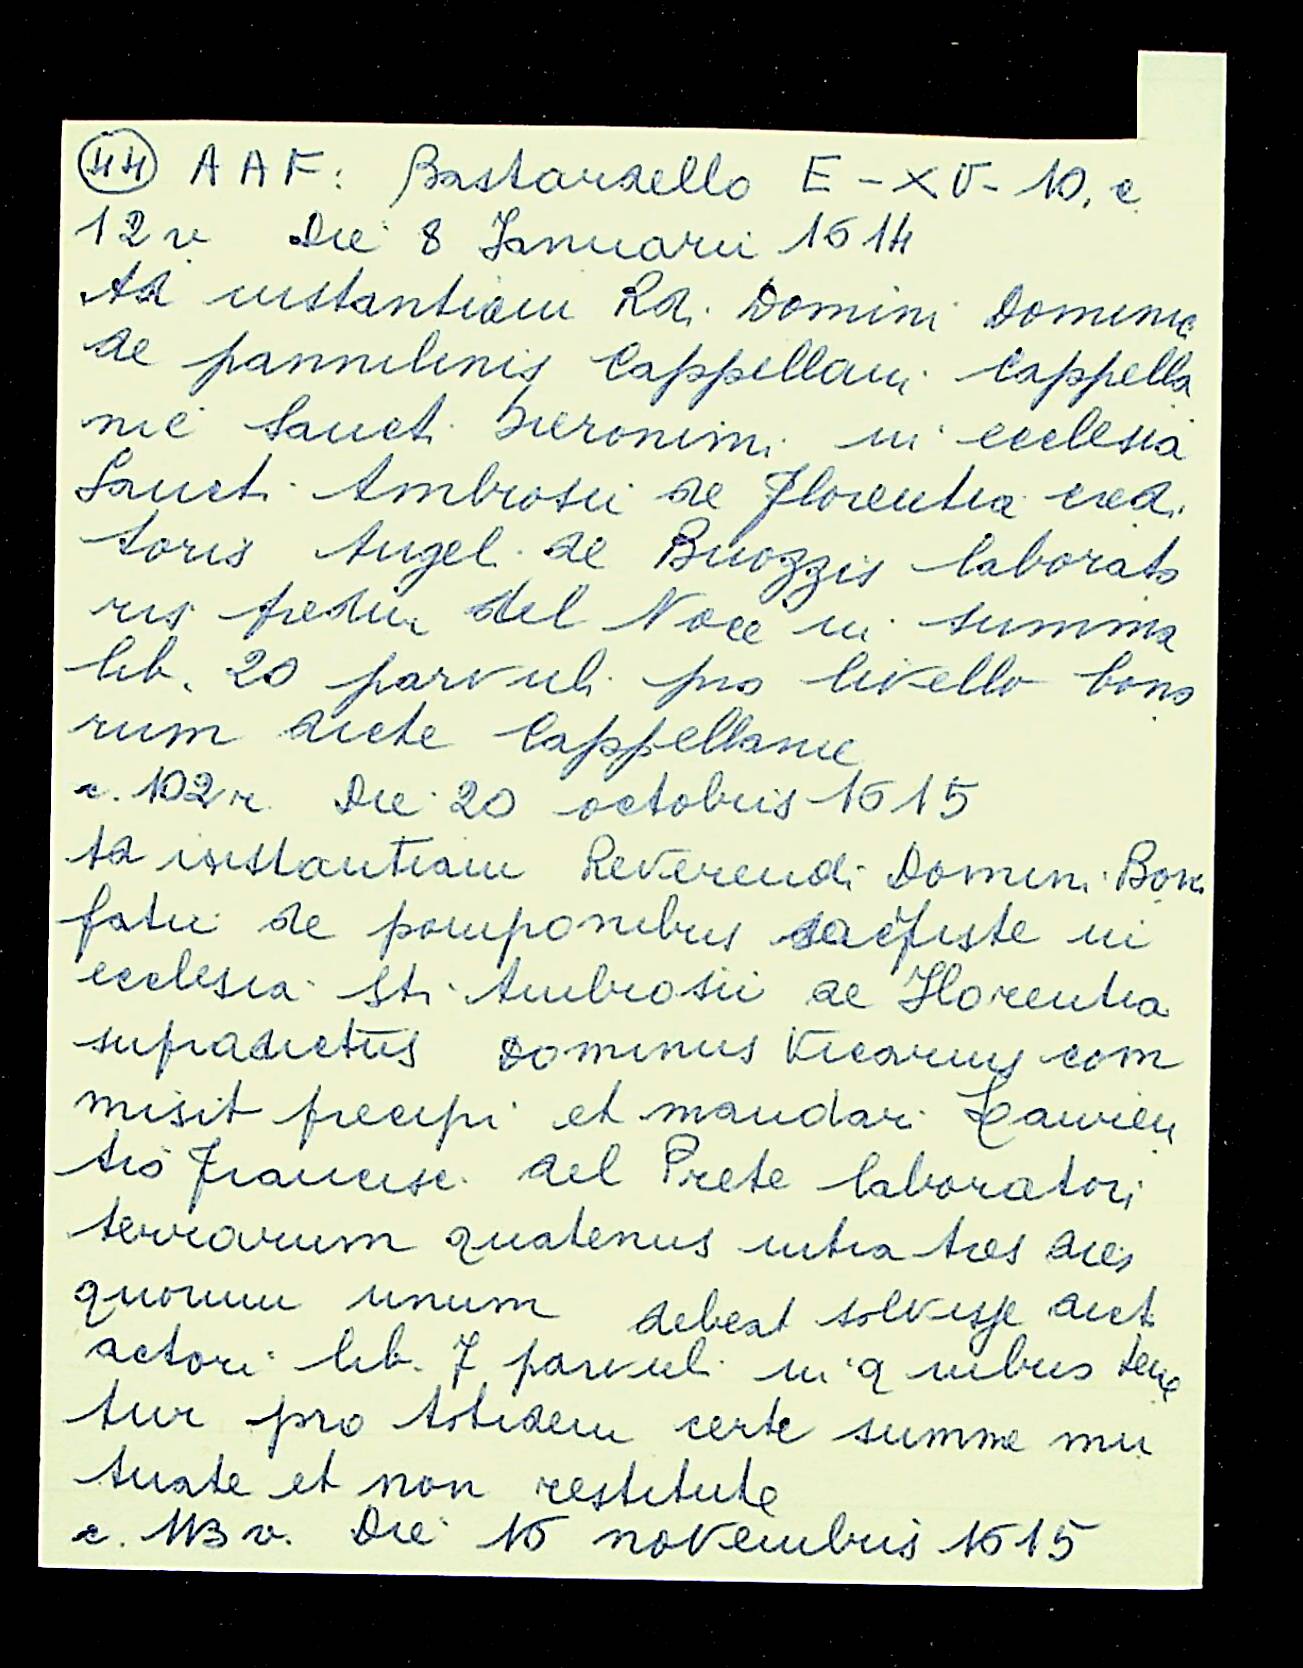 44 AAF: Bastardello E-XV-10, c
12 v. Die 8 Januarii 1614
Ad instantiam Rdi. Domini Dominici
de pannilinis Cappellani Cappella
nie Sancti Hieronimi in ecclesia
Sancti Ambrosii de Florentia credi
toris Angeli de Buozzis laborato
ris predii del Noce in summa
lib. 20 parvuli pro livello bono
rum dicte Cappellanie
c. 102 r. Die 20 octobris 1615
Ad instantiam Reverendi Domini Boni
fatii de pomponibus sacriste in
ecclesia Sti Ambrosii de Florentia
supradictus Dominus Vicarius com
misit precipi et mandari Laurien
tio Francisci del Prete laboratori
terrarum quatenus intra tres dies
quorum unum debeat solvisse dicto
actori lib. 7 parvuli in quibus tene
tur pro totidem certe summe mu
tuate et non restitute
c. 113 v. Die 16 novembris 1615